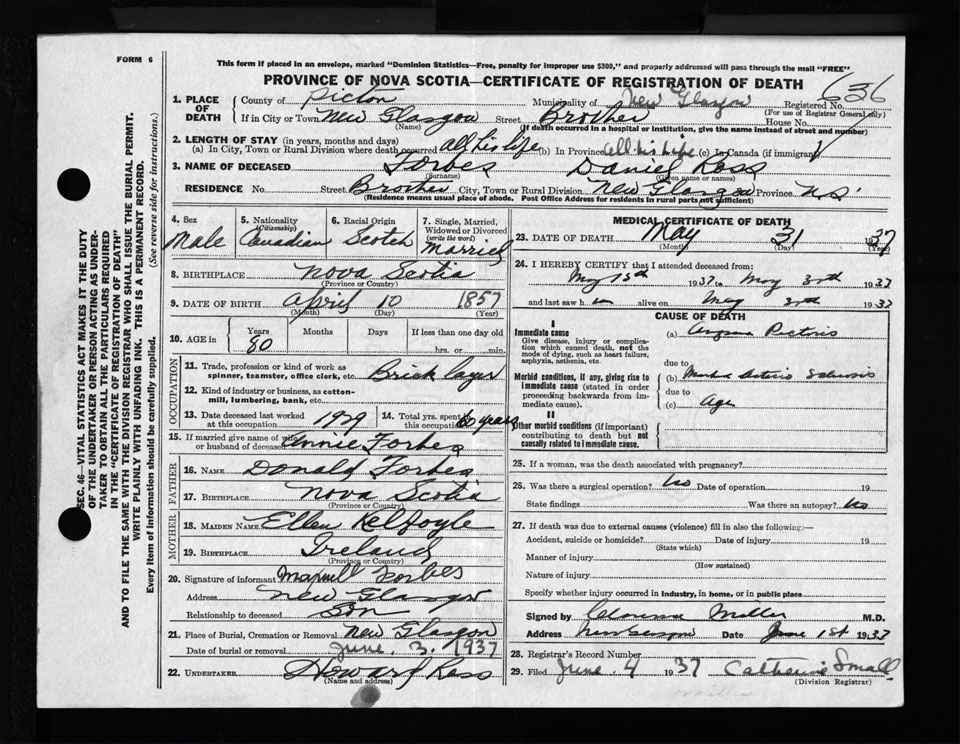 FORM 6
This form if placed in an envelope, marked "Dominion Statistics—Free, penalty for improper use $300," and properly addressed will pass through the mail "FREE"
PROVINCE OF NOVA SCOTIA—CERTIFICATE OF REGISTRATION OF DEATH
636
1. PLACE OF DEATH
County of Pictou Municipality of New Glasgow Registered No.
(For use of Registrar General only)
If in City or Town New Glasgow Street Brother House No.
(Name) (If death occurred in a hospital or institution, give the name instead of street and number)
2. LENGTH OF STAY (in years, months and days)
(a) In City, Town or Rural Division where death occurred all his life (b) In Province all his life (c) In Canada (if immigrant)
3. NAME OF DECEASED Forbes Daniel Ross
(Surname) (Given name or names)
RESIDENCE No. Street Brother City, Town or Rural Division New Glasgow Province N.S.
(Residence means usual place of abode. Post Office Address for residents in rural parts not sufficient)
4. Sex Male
5. Nationality (Citizenship) Canadian
6. Racial Origin Scotch
7. Single, Married, Widowed or Divorced (write the word) Married
8. BIRTHPLACE Nova Scotia
(Province or Country)
9. DATE OF BIRTH April 10 1857
(Month) (Day) (Year)
10. AGE in Years 80 Months Days If less than one day old
hrs. or min.
OCCUPATION
11. Trade, profession or kind of work as spinner, teamster, office clerk, etc. Brick layer
12. Kind of industry or business, as cotton-mill, lumbering, bank, etc.
13. Date deceased last worked at this occupation 1929
14. Total yrs. spent in this occupation 60 years
15. If married give name of wife or husband of deceased Annie Forbes
FATHER
16. NAME Donald Forbes
17. BIRTHPLACE Nova Scotia
(Province or Country)
MOTHER
18. MAIDEN NAME Ellen
19. BIRTHPLACE Ireland
(Province or Country)
20. Signature of informant Forbes
Address New Glasgow
Relationship to deceased Son
21. Place of Burial, Cremation or Removal New Glasgow
Date of burial or removal June 3, 1937
22. UNDERTAKER Howard Ross
(Name and address)
MEDICAL CERTIFICATE OF DEATH
23. DATE OF DEATH May 31 1937
(Month) (Day) (Year)
24. I HEREBY CERTIFY that I attended deceased from:
May 1937 to May 30th 1937
and last saw him alive on May 30th 1937
CAUSE OF DEATH
I
Immediate cause
Give disease, injury or complication which caused death, not the mode of dying, such as heart failure, asphyxia, asthenia, etc.
(a) Angina Pectoris
due to
Morbid conditions, if any, giving rise to immediate cause (stated in order proceeding backwards from immediate cause).
(b) Sclerosis
due to
(c) Age
II
Other morbid conditions (if important) contributing to death but not causally related to immediate cause.
25. If a woman, was the death associated with pregnancy?
26. Was there a surgical operation? No Date of operation 19
State findings Was there an autopsy? No
27. If death was due to external causes (violence) fill in also the following:—
Accident, suicide or homicide? Date of injury 19
(State which)
Manner of injury
(How sustained)
Nature of injury
Specify whether injury occurred in Industry, in home, or in public place
Signed by Clarence Miller M.D.
Address New Glasgow Date June 1st 1937
28. Registrar's Record Number
29. Filed June 4 1937 Catherine Small
(Division Registrar)
SEC. 46—VITAL STATISTICS ACT MAKES IT THE DUTY
OF THE UNDERTAKER OR PERSON ACTING AS UNDER-
TAKER TO OBTAIN ALL THE PARTICULARS REQUIRED
IN THE "CERTIFICATE OF REGISTRATION OF DEATH"
AND TO FILE THE SAME WITH THE DIVISION REGISTRAR WHO SHALL ISSUE THE BURIAL PERMIT.
WRITE PLAINLY WITH UNFADING INK. THIS IS A PERMANENT RECORD.
Every item of information should be carefully supplied. (See reverse side for instructions.)